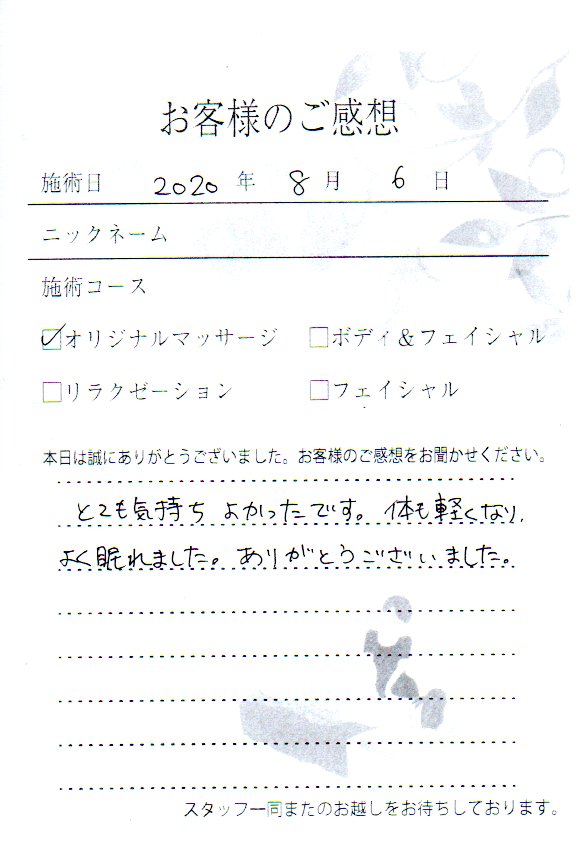 お客様のご感想
施術日 2020 年 8 月 6 日
ニックネーム
施術コース
オリジナルマッサージ ボディ&フェイシャル
リラクゼーション フェイシャル
本日は誠にありがとうございました。お客様のご感想をお聞かせください。
とても気持ちよかったです。体も軽くなり、
よく眠れました。ありがとうございました。
スタッフ一同またのお越しをお待ちしております。